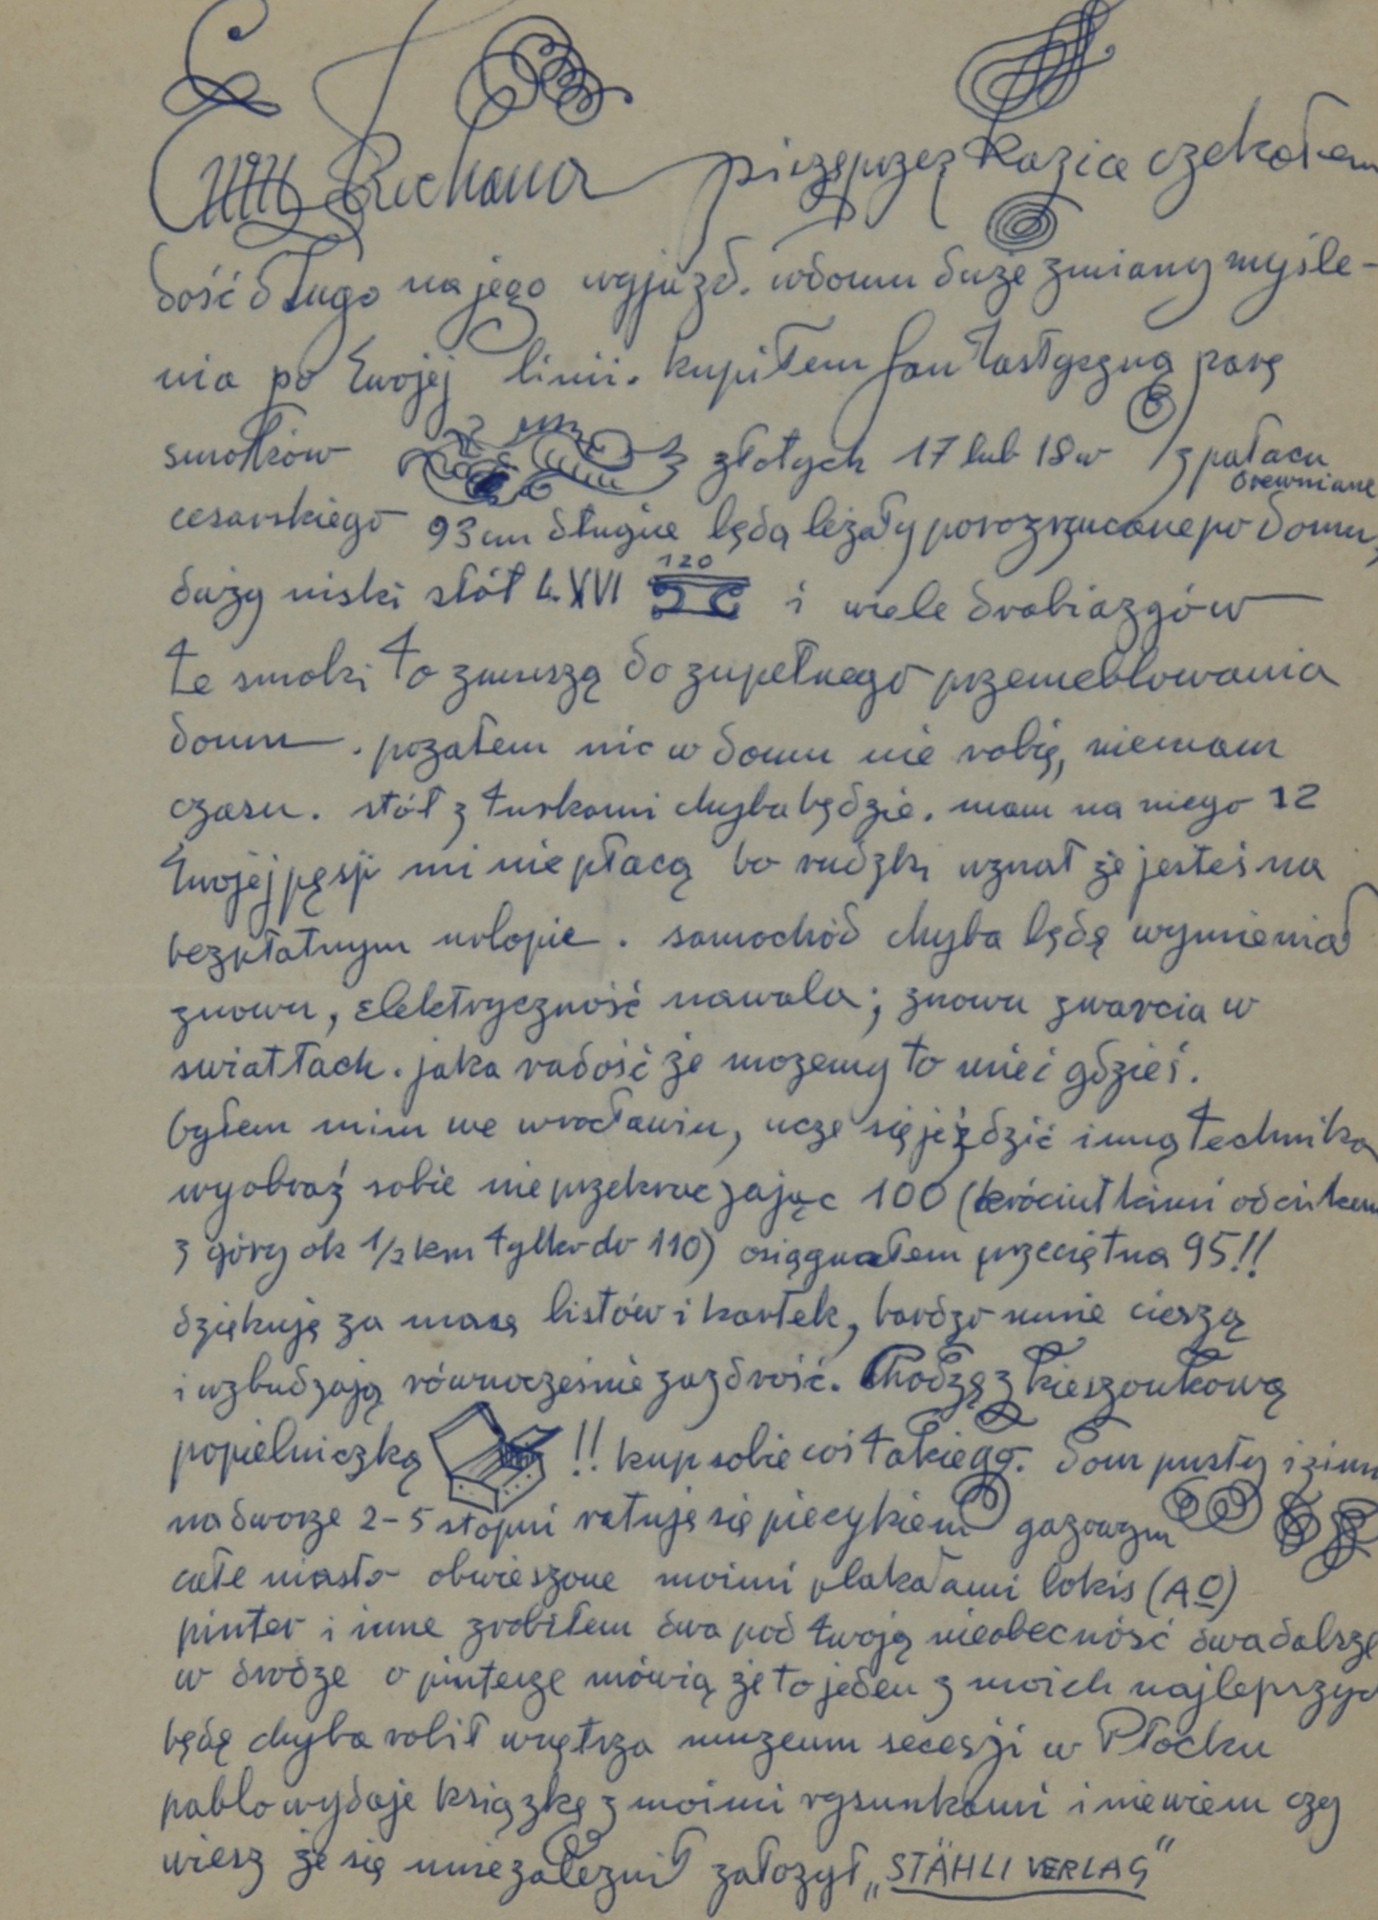 Kochana piszę przez Kazica czekałem
dość długo na jego wyjazd. w domu duże zmiany myśle-
nia po twojej linii. kupiłem fantastyczną parę
smoków złotych 17 lub 18 w / z pałacu
drewniane
cesarskiego 93 cm długie będą leżały porozrzucane po domu,
120
duży niski stół L. XVI i wiele drobiazgów
te smoki to zmuszą do zupełnego przemeblowania
domu. pozatem nic w domu nie robię, niemam
czasu. stół z turkami chyba będzie. mam na niego 12
twojej pęsji mi nie płacą bo rudzki uznał że jesteś na
bezpłatnym urlopie. samochód chyba będę wymieniał
znowu, elektryczność nawala; znowu zwarcia w
swiatłach. jaka radość że mozemy to mieć gdzieś.
byłem nim we wrocławiu, uczę się jeździć inną techniką
wyobraź sobie nieprzekraczając 100 (króciutkimi odcinkam
z góry ok 1/2 km tylko do 110) osiągnałem przeciętna 95!!
dziękuję za masę listów i kartek, bardzo mnie cieszą
i wzbudzają równocześnie zazdrość. Chodzę z kieszonkową
popielniczką !! kup sobie coś takiego. dom pusty i zimn
na dworze 2-5 stopni ratuję się piecykiem gazowym
całe miasto obwieszone moimi plakatami lokis (AO)
pinter i inne zrobiłem dwa pod twoją nieobecność dwa dalsze
w drodze o pinterze mówią że to jeden z moich najlepszych
będę chyba robił wnętrza muzeum secesji w Płocku
pablo wydaje książkę z moimi rysunkami i niewiem czy
wiesz że się uniezależnił założył „STÄHLI VERLAG"